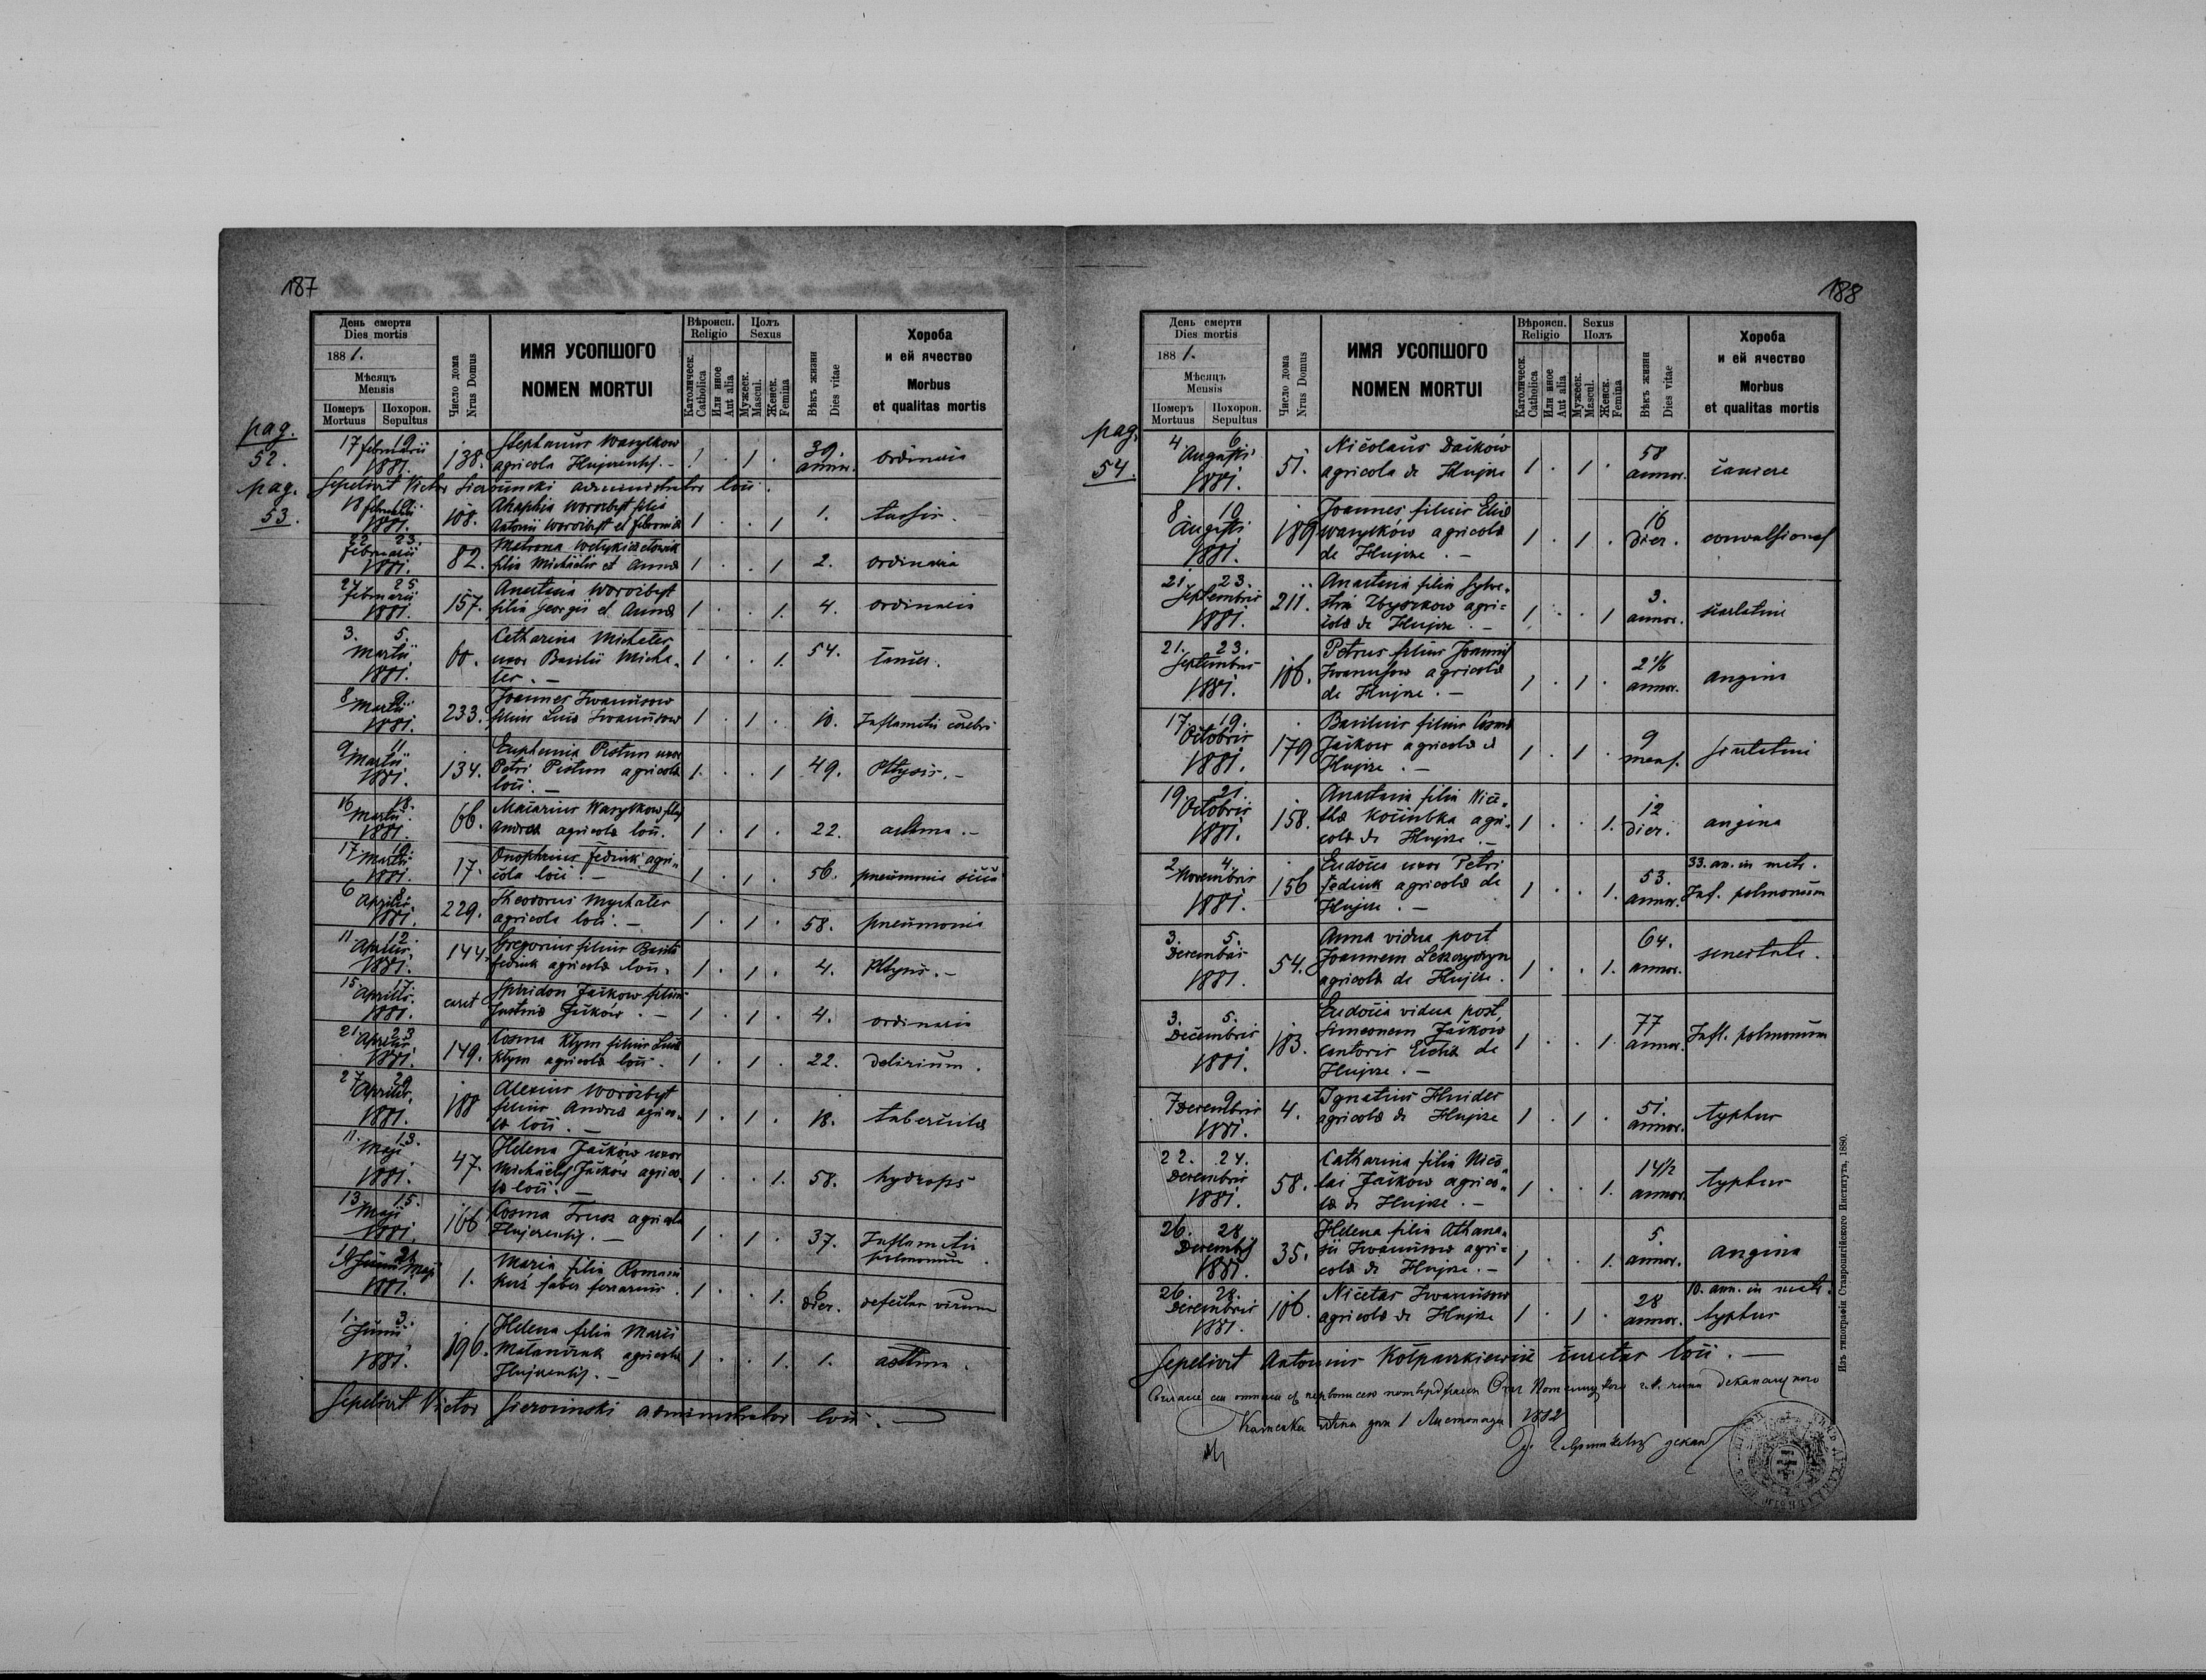 187
День смерти
Dies mortis
1881.
Мѣсяць
Mensis
Померъ Похорон.
Mortuus Sepultus
Число дома
Nrus Domus
ИМЯ УСОПШОГО
NOMEN MORTUI
Вѣроисп.
Religio
Католическ.
Catholica
Или иное
Aut alia
Полъ
Sexus
Мужеск.
Mascul.
Женск.
Femina
Вѣкъ жизни
Dies vitae
Хороба
и ей ячество
Morbus
et qualitas mortis
pag.
52.
17 19 februarii 1881. 138. Stephanus Wasylkow
agricola Hujcensis. — 1 . 1 . 39. annor. ordinaria
Sepelivit Victor Sieroinski administrator loci.
pag.
53.
18 19. februarii 1881. 108. Ahaphia Worobyt filia
Antonii Worobyt et 1 . . 1 1. tussis.
22. 23. februarii 1881. 82. Matrona
filia Michaelis et Annae 1 . . 1 2. ordinaria
24 25 februarii 1881. 157. Anastasia Worobyt
filia Georgii et Annae 1 . . 1. 4. ordinaria
3. 5. Martii 1881. Catharina Michater
uxor Basilii Micha-
ter. — 1 . . 1. 54.
8 9. Martii 1881. 233. Joannes Iwanusow
filius Lucae Iwanusow 1 . 1 . 10. Inflamatio cerebri
9. 11 Martii 1881. 134. Euphemia Pistun uxor
Petri Pistun agricola
loci. — 1. . . 1 49. Phtysis. —
16 18. Martii 1881. 66. Macarius Wasylkow
Andreae agricola loci. 1 . 1 . 22. asthma. —
17. Martii 1881. 17. Onophrius Fediuk agri-
cola loci. — 1 . 1 . 56. pneumonia
6 8. Aprilis 1881. 229. Theodorus Mychater
agricola loci. — 1 . 1 . 58. pneumonia
11 12. Aprilis 1881. 144. Gregorius filius Basilii
Fediuk agricola loci. 1 . 1 . 4. Phtysis. —
15. 17. Aprilis 1881. caret Spiridon Jačkow filius
Justinae Jačków. — 1 . 1 . 4. ordinaria
21 23 Aprilis 1881. 149. Cosma Klym filius Lucae
Klym agricola loci. 1 . 1 . 22. delirium.
27 29 Aprilis 1881. 188 Alexius Worobyt
filius Andreae agrico-
la loci. — 1 . 1 . 18. tubercula
11. 13. Maji 1881. 47. Helena Jačków uxor
Michaelis Jačków agrico-
la loci. — 1 . . 1. 58. hydrops
13 15. Maji 1881. 166 Cosma Trusz agricola
Hujcensis. — 1 . 1 . 37. Inflamatio
pulmonum.
1881. 1. Maria filia Romani
faber ferrarius. 1 . . 1. 6 dier. defectus virium
1. 3. Junii 1881. 190. Helena filia
agricola
Hujcensis. — 1 . . 1. 1. asthma.
Sepelivit Victor Sieroinski administrator loci. —
188
День смерти
Dies mortis
1881.
Мѣсяць
Mensis
Померъ Похорон.
Mortuus Sepultus
Число дома
Nrus Domus
ИМЯ УСОПШОГО
NOMEN MORTUI
Вѣроисп.
Religio
Католическ.
Catholica
Или иное
Aut alia
Sexus
Полъ
Мужеск.
Mascul.
Женск.
Femina
Вѣкъ жизни
Dies vitae
Хороба
и ей ячество
Morbus
et qualitas mortis
pag.
54.
4 6 Augusti 1881. 51. Nicolaus Dačków
agricola de Hujcze 1 . 1 . 58 annor.
8 10 Augusti 1881. 189 Joannes filius Eliae
Wasylków agricola
de Hujcze. — 1 . 1 . 16 dier. convulsiones
21. 23. Septembris 1881. 211. Anastasia filia Sylve-
stri Zbyszkow agri-
cola de Hujcze. — 1 . . 1 3. annor. scarlatina
21. 23. Septembris 1881. 106. Petrus filius Joannis
Iwanusow agricola
de Hujcze. — 1 . 1 . annor. angina
17. 19. Octobris 1881. 179 Basilius filius Cosmae
Jačkow agricola
Hujcze. — 1 . 1 . 9 mens. scarlatina
19. 21. Octobris 1881. 158. Anastasia filia Nice-
tae agri-
cola de Hujcze. — 1 . . 1. 12 dier. angina
2 4. Novembris 1881. 156 Eudocia uxor Petri
Fediuk agricola de
Hujcze. — 1 . . 1. 53. annor. 33. an. in matr.
Inf. pulmonum
3. 5. Decembris 1881. 54. Anna vidua post
Joannem
agricola de Hujcze. 1 . . 1. 64. annor. senectute.
3. 5. Decembris 1881. 183. Eudocia vidua post
Simeonem Jačkow
cantoris Eccliae de
Hujcze. — 1 . . 1. 77 annor. Infl. pulmonum
7 9. Decembris 1881. 4. Ignatius Hnider
agricola de Hujcze 1 . 1 . 51. annor. typhus
22. 24. Decembris 1881. 58. Catharina filia Nico-
lai Jačkow agrico-
la de Hujcze. — 1 . . 1. 14½ annor. typhus
26. 28 Decembris 1881. 35. Helena filia Athana-
sii Iwanusow agri-
cola de Hujcze. — 1 . . 1. 5. annor. angina
26. 28. Decembris 1881. 106. Nicetas Iwanusow
agricola de Hujcze 1 . 1 . 28 annor. 10. ann. in matr.
typhus
Sepelivit Antonius Kolpaczkiewicz curatus loci. —
1882
декан
Изъ типографіи Ставропигійского Института, 1880.